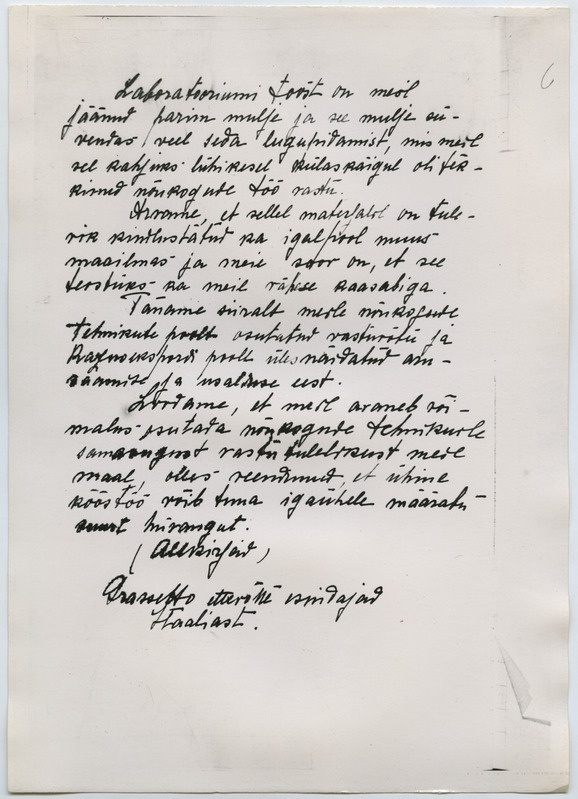 6
Laboratooriumi tööst on meil
jäänud parim mulje ja see mulje sü-
vendas veel seda lugupidamist, mis meil
sel kahjuks lühikesel külaskäigul oli tek-
kinud nõukogude töö vastu.
Arvame, et sellel materjalil on tule-
vik kindlustatud ka igalpool muus
maailmas ja meie soov on, et see
teostuks ka meil rahise kaasabiga.
Täname siiralt meile nõukogude
tehnikute poolt osutatud vastuvõtu ja
poolt ülesnäidatud aru-
saamise ja usalduse eest.
Loodame, et meil avaneb või-
malus osutada nõukogude tehnikuile
samasugust vastutulelikust meie
maal, olles veendunud, et ühine
kööstöö võib tuua igaühele määratu
suurt hüvangut.
(Allkirjad)
Grassetto ettevõtte esindajad
Itaaliast.